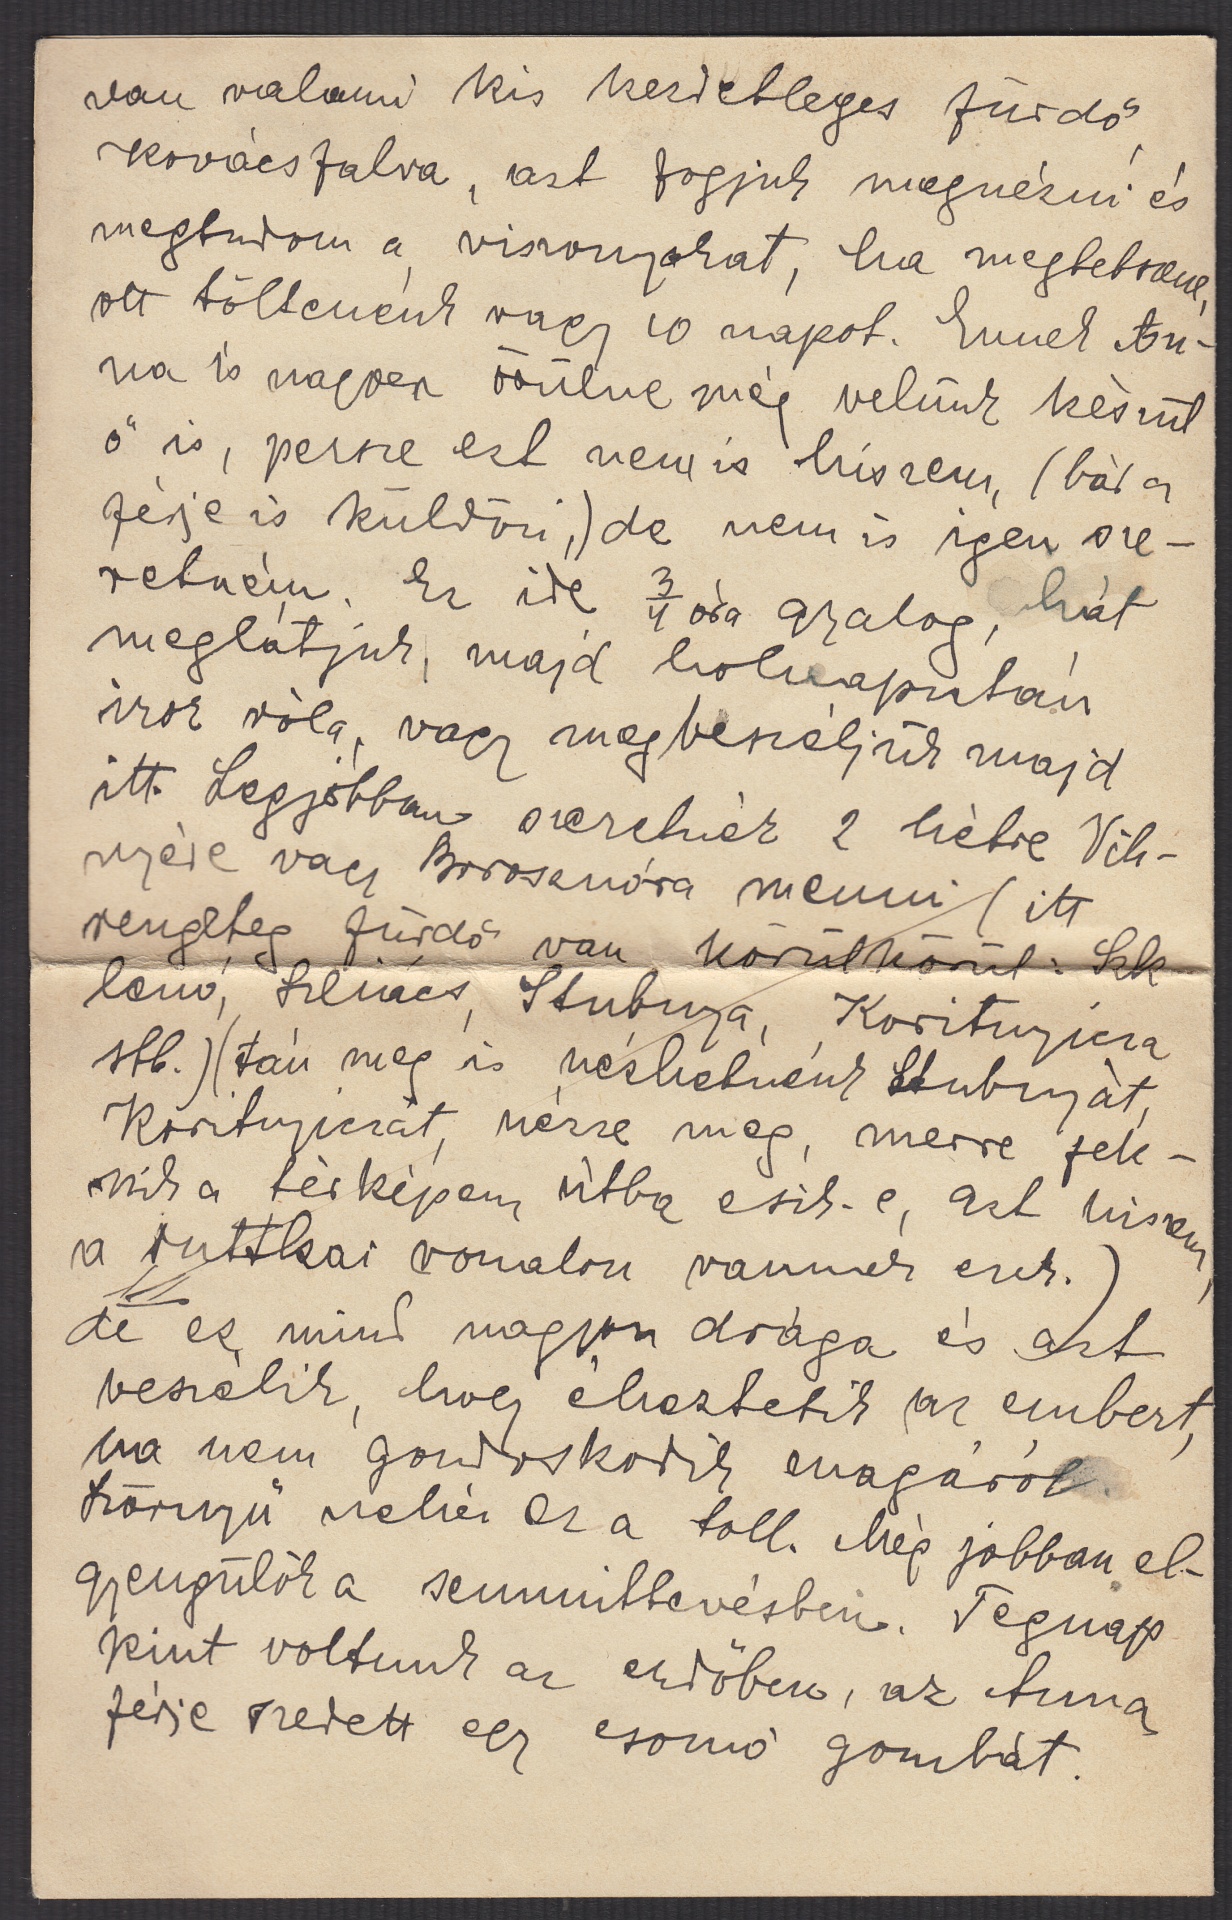 van valami kis kezdetleges fürdő
Kovácsfalva, azt fogjuk megnézni és
megtudom a viszonyokat, ha megtetszene,
ott töltenénk vagy 10 napot. Ennek An-
na is nagyon örülne még velünk készül
ő is, persze ezt nem is hiszem, (bár a
férje is küldözi,) de nem is igen sze-
retném. Ez ide 3/4 óra gyalog, hát
meglátjuk, majd holnapután
irok róla, vagy megbeszéljük majd
itt. Legjobban szeretnék 2 hétre Vih-
nyére vagy Borosznóra menni (itt
rengeteg fürdő van körülkörül: Szk
lenó, Szliács, Stubnya, Koritnyicza
stb.) (tán meg is nézhetnénk Stubnyát,
Koritnyiczát, nézze meg, merre fek-
nik a térképen, útba esik-e, azt hiszem,
a ruttkai vonalon vannak ezek.)
de ez mind nagyon drága és azt
beszélik, hogy éheztetik az embert,
ha nem gondoskodik magáról.
Szörnyü nehéz ez a toll. Még jobban el-
gyengülök a semmittevésben. Tegnap
kint voltunk az erdőben, az Anna
férje szedett egy csomó gombát.